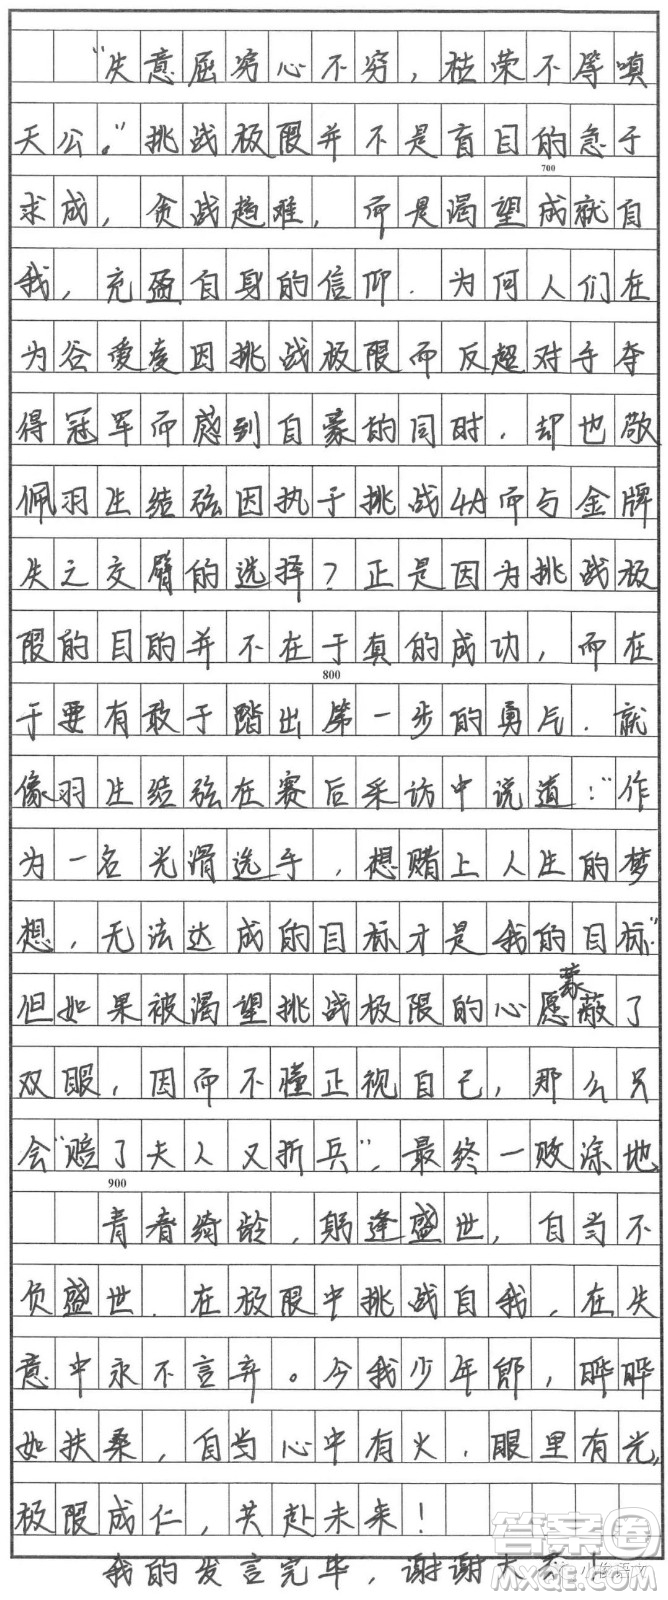 “失意屈穷心不穷，枯荣不等嗔
天公。”挑战极限并不是盲目的急于
700
求成，贪战趋难，而是渴望成就自
我，充盈自身的信仰．为何人们在
为谷爱凌因挑战极限而反超对手夺
得冠军而感到自豪的同时，却也敬
佩羽生结弦因执于挑战4A而与金牌
失之交臂的选择？正是因为挑战极
限的目的并不在于真的成功，而在
800
于要有敢于踏出第一步的勇气．就
像羽生结弦在赛后采访中说道：“作
为一名光滑选手，想赌上人生的梦
想，无法达成的目标才是我的目标”
但如果被渴望挑战极限的心愿蒙蔽了
双眼，因而不懂正视自己，那么只
会“赔了夫人又折兵”，最终一败涂地
900
青春绮龄，躬逢盛世，自当不
负盛世．在极限中挑战自我，在失
意中永不言弃。今我少年郎，晔晔
如扶桑，自当心中有火，眼里有光，
极限成仁，共赴未来！
我的发言完毕，谢谢大家！
答案圈
MXQE.COM